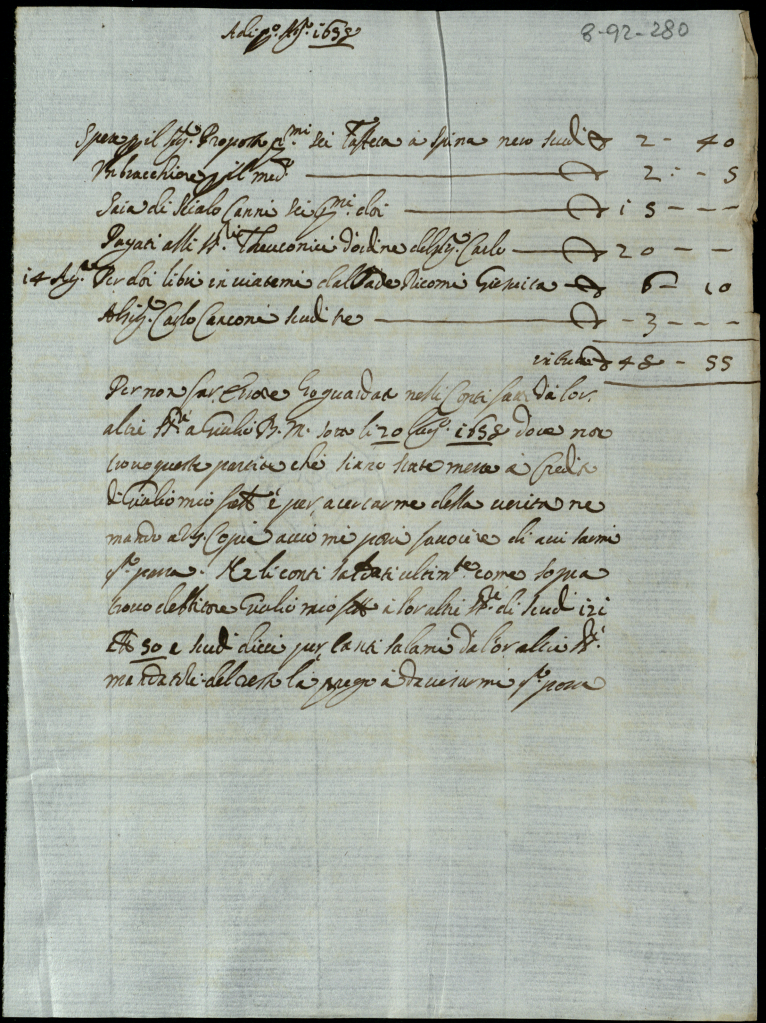 Adi p.º Ag.º 1658
8-92-280
Spera p il Sig.r Proposto p.mi sei Taffeta a spina nero scudi 2 - 40
Un bracchiere p il med.º 2 : - 5
Saia di Scialo Canni sei p.mi doi 15 - - -
Pagati alli SS.ri Theuconici d'ordine del Sig.r Carlo 20 - -
14 Ag.to Per doi libri inviatemi dal Pade Ricomi Giesuita 6 - 10
Al Sig.r Carlo Canconi scudi tre - 3 - - -
in tutto 48 - 55
Per non far Errore ho guardato nelli Conti dalor.
altri SS.ri a Giulio B. M. sotto li 20 Lug.º 1658 dove non
trovo queste partite che siano state messe a Credito
di Giulio mio e per acertarme della verita ne
mando a V.S. Copia accio mi possi favorire di avisarmi
se passa. Ma li conti saldati ultim.te come sopra
trovo debbitore Giulio mio a lor altri SS.ri di scudi 121
50 e scudi dieci per tanti salami da lor altri SS.ri
mandatoli del resto la prego a davisarmi se passa